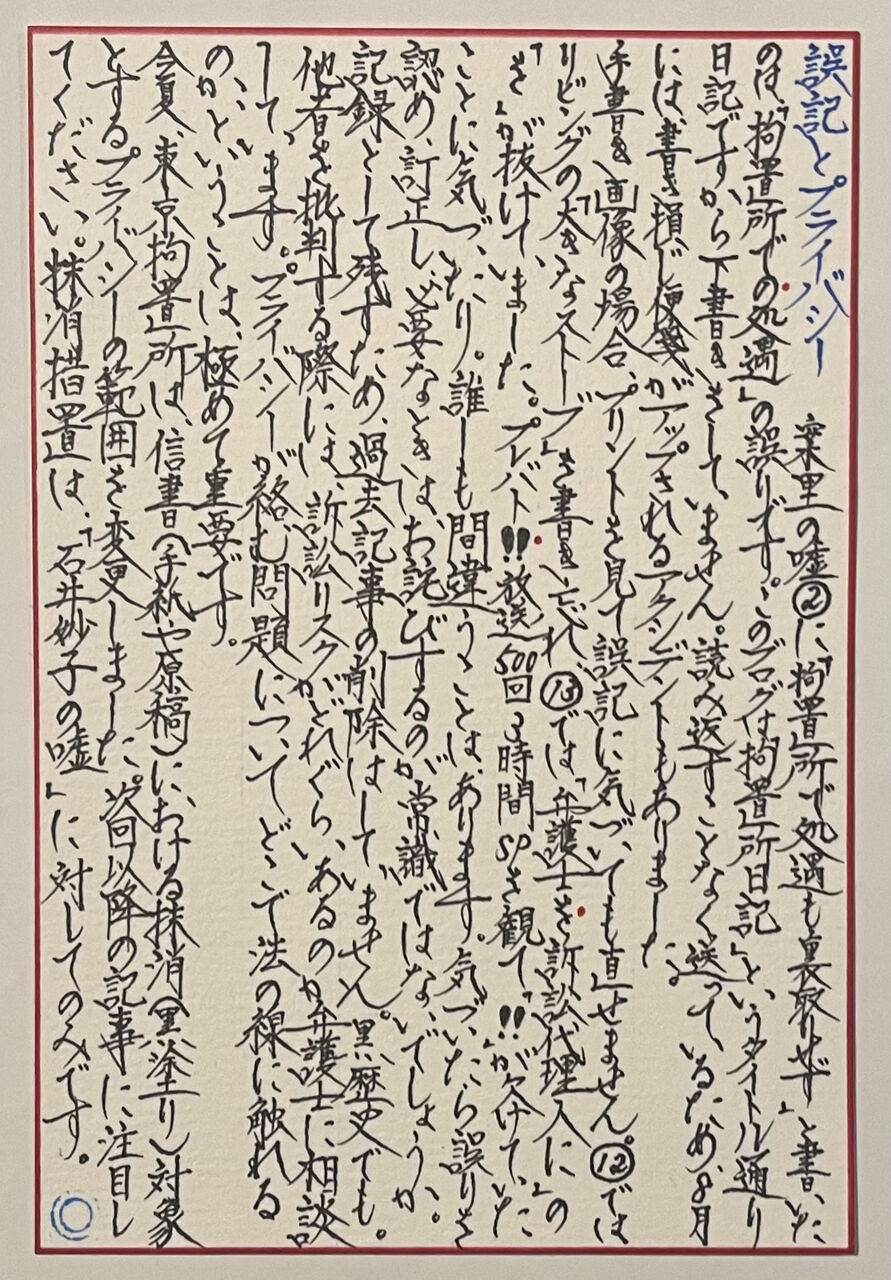 誤記とプライバシー 棄里の嘘②に「拘置所で処遇も裏取りせず」と書いた
のは、「拘置所での処遇」の誤りです。このブログは「拘置所日記」というタイトル通り
日記ですから下書きをしていません。読み返すことなく送っているため、8月
には、書き損じ便箋がアップされるアクシデントもありました。
手書き画像の場合、プリントを見て誤記に気づいても直せません。⑫では
リビングの「大きなストーブ」を書き忘れ、⑬では、「弁護士を訴訟代理人に」の
「を」が抜けていました。プレバト‼放送500回3時間SPを観て、「‼」が欠けていた
ことに気づいたり。誰しも間違うことは、あります。気づいたら誤りを
認め、訂正し、必要なときは、お詫びするのが常識ではないでしょうか。
記録として残すため、過去記事の削除はしていません。黒歴史でも。
他者を批判する際には、訴訟リスクがどれぐらいあるのか弁護士に相談
しています。プライバシーが絡む問題について、どこで法の線に触れる
のか、ということは、極めて重要です。
今夏、東京拘置所は、信書（手紙や原稿）における抹消（黒塗り）対象
とするプライバシーの範囲を変更しました。次回以降の記事に注目し
てください。抹消措置は、「石井妙子の嘘」に対してのみです。